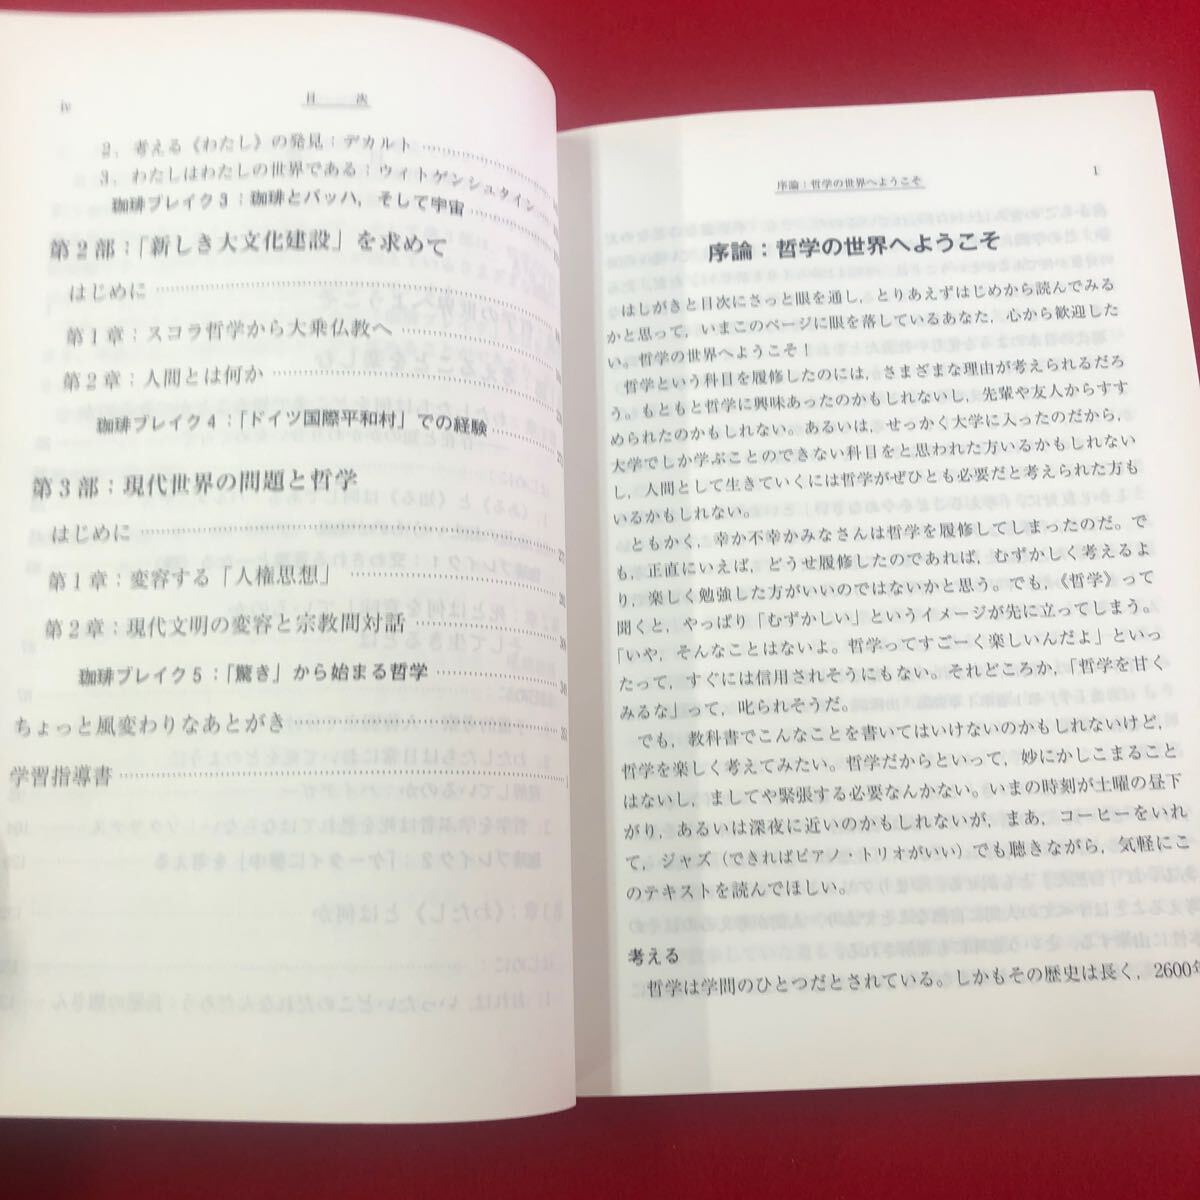 iv
目 次
2. 考える《わたし》の発見：デカルト
3. わたしはわたしの世界である：ウィトゲンシュタイン
珈琲ブレイク3：珈琲とバッハ，そして宇宙
第2部：「新しき大文化建設」を求めて
はじめに
第1章：スコラ哲学から大乗仏教へ
第2章：人間とは何か
珈琲ブレイク4：「ドイツ国際平和村」での経験
第3部：現代世界の問題と哲学
はじめに
第1章：変容する「人権思想」
第2章：現代文明の変容と宗教間対話
珈琲ブレイク5：「驚き」から始まる哲学
ちょっと風変わりなあとがき
学習指導書
序論：哲学の世界へようこそ
1
序論：哲学の世界へようこそ
はしがきと目次にさっと眼を通し，とりあえずはじめから読んでみる
かと思って，いまこのページに眼を落しているあなた，心から歓迎した
い。哲学の世界へようこそ！
哲学という科目を履修したのには，さまざまな理由が考えられるだろ
う。もともと哲学に興味あったのかもしれないし，先輩や友人からすす
められたのかもしれない。あるいは，せっかく大学に入ったのだから，
大学でしか学ぶことのできない科目をと思われた方いるかもしれない
し，人間として生きていくには哲学がぜひとも必要だと考えられた方も
いるかもしれない。
ともかく，幸か不幸かみなさんは哲学を履修してしまったのだ。で
も，正直にいえば，どうせ履修したのであれば，むずかしく考えるよ
り，楽しく勉強した方がいいのではないかと思う。でも，《哲学》って
聞くと，やっぱり「むずかしい」というイメージが先に立ってしまう。
「いや，そんなことはないよ。哲学ってすごーく楽しいんだよ」といっ
たって，すぐには信用されそうにもない。それどころか，「哲学を甘く
みるな」って，叱られそうだ。
でも，教科書でこんなことを書いてはいけないのかもしれないけど，
哲学を楽しく考えてみたい。哲学だからといって，妙にかしこまること
はないし，ましてや緊張する必要なんかない。いまの時刻が土曜の昼下
がり，あるいは深夜に近いのかもしれないが，まあ，コーヒーをいれ
て，ジャズ（できればピアノ・トリオがいい）でも聴きながら，気軽にこ
のテキストを読んでほしい。
考える
哲学は学問のひとつだとされている。しかもその歴史は長く，2600年